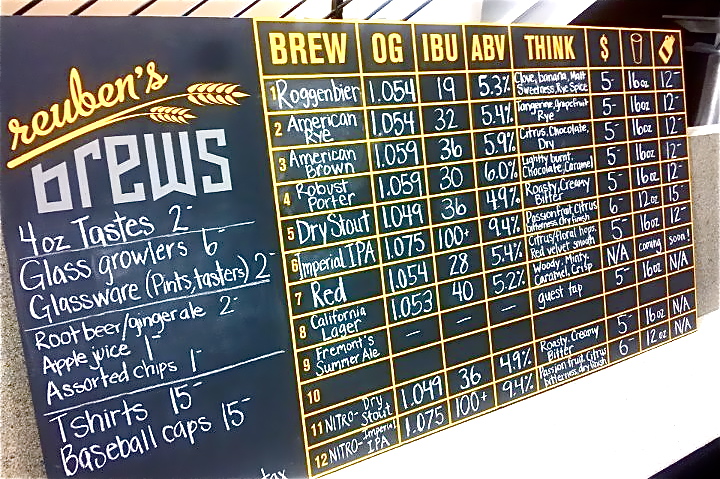 reuben's
brews
4 oz Tastes 2-
Glass growlers 6-
Glassware (Pints, tasters) 2-
Root beer/ginger ale 2-
Apple juice 1-
Assorted chips 1-
Tshirts 15-
Baseball caps 15-
tax
BREW OG IBU ABV THINK $
1 Roggenbier 1.054 19 5.3% Clove, banana, Malt Sweetness, Rye Spice 5- 16oz 12-
2 American Rye 1.054 32 5.4% Tangerine, grapefruit Rye 5- 16oz 12-
3 American Brown 1.059 36 5.9% Citrus, Chocolate, Dry 5- 16oz 12-
4 Robust Porter 1.059 30 6.0% Lightly burnt, Chocolate, Caramel 5- 16oz 12-
5 Dry Stout 1.049 36 4.9% Roasty, Creamy Bitter 5- 16oz 12-
6 Imperial IPA 1.075 100+ 9.4% Passionfruit, Citrus bitterness, dry finish 6- 12oz 15-
7 Red 1.054 28 5.4% Citrus/floral hops, Red velvet smooth 5- 16oz 12-
8 California Lager 1.053 40 5.2% Woody, Minty, Caramel, Crisp N/A coming soon!
9 Fremont's Summer Ale — — — guest tap 5- 16oz N/A
10
11 NITRO- Dry Stout 1.049 36 4.9% Roasty, Creamy Bitter 5- 16oz N/A
12 NITRO- Imperial IPA 1.075 100+ 9.4% Passion fruit, Citrus bitterness, dry finish 6- 12oz N/A